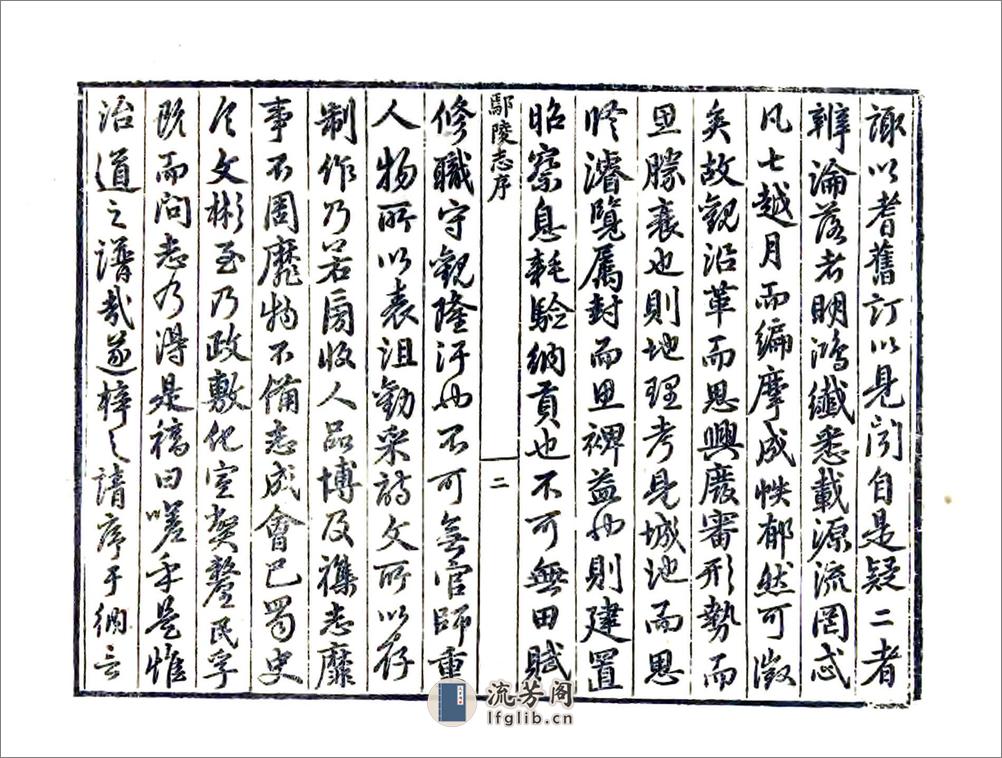 諏以耆舊訂以見聞自是疑二者
辨淪落者明鴻纖悉載源流罔忒
凡七越月而編摩成帙郁然可徵
矣故觀沿革而思興廢審形勢而
思勝衰也則地理考見城池而思
修濬覽属封而思裨益也則建置
昭察息耗驗納貢也不可無田賦
鄢陵志序
二
修職守觀隆汙也不可無官師重
人物所以表沮勸采詩文所以存
制作乃若旁收人品博及襍志靡
事不周靡物不備志成會巴蜀史
文彬至乃政敷化宣癸釐民孚
既而問志乃得是稿曰嗟乎是惟
治道之譜哉遂梓之請序于網言
流芳阁
lfglib.cn